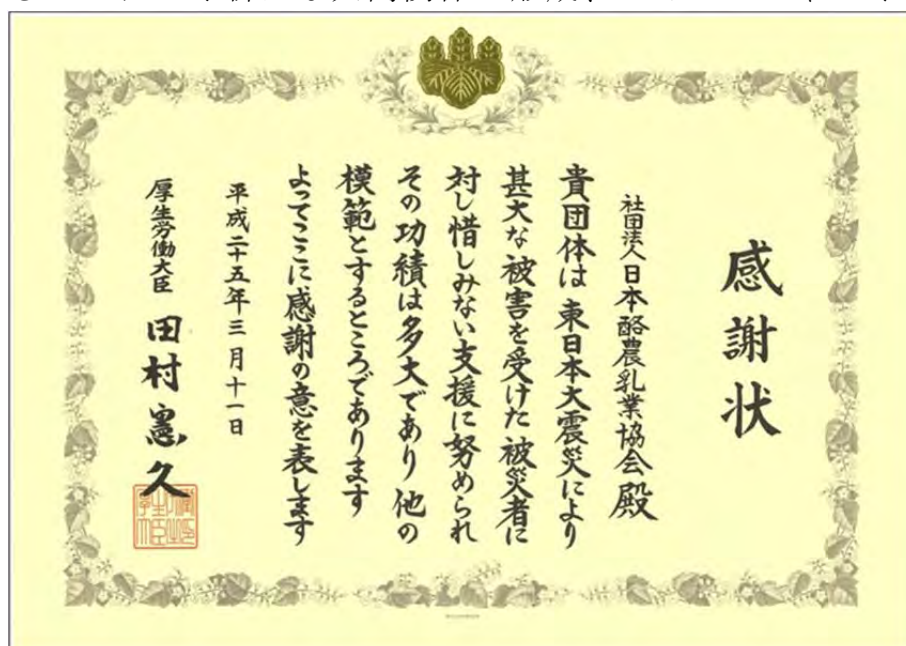 感謝状
社団法人日本酪農乳業協会殿
貴団体は東日本大震災により
甚大な被害を受けた被災者に
対し惜しみない支援に努められ
その功績は多大であり他の
模範とするところであります
よってここに感謝の意を表します
平成二十五年三月十一日
厚生労働大臣 田村憲久